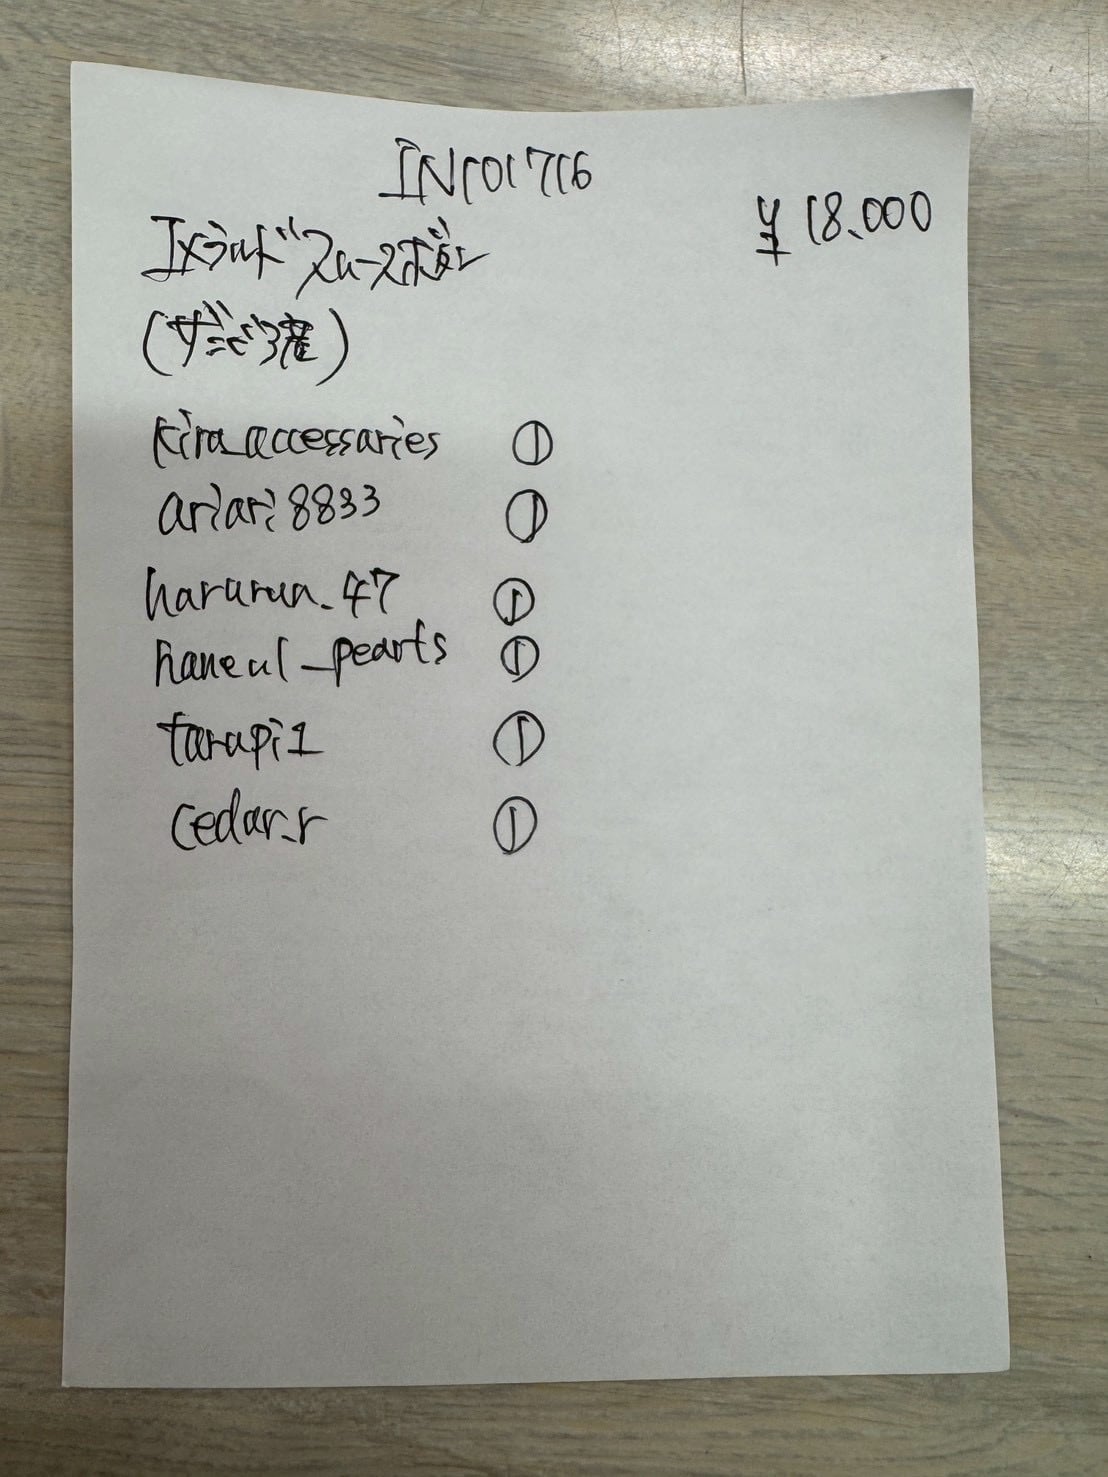 IN101716
¥18.000
エメラルドスムースボタン
(ザンビア産)
kira_accessaries ①
ariari8833 ①
hararun_47 ①
haneul_pearts ①
tarapi1 ①
cedar.r ①